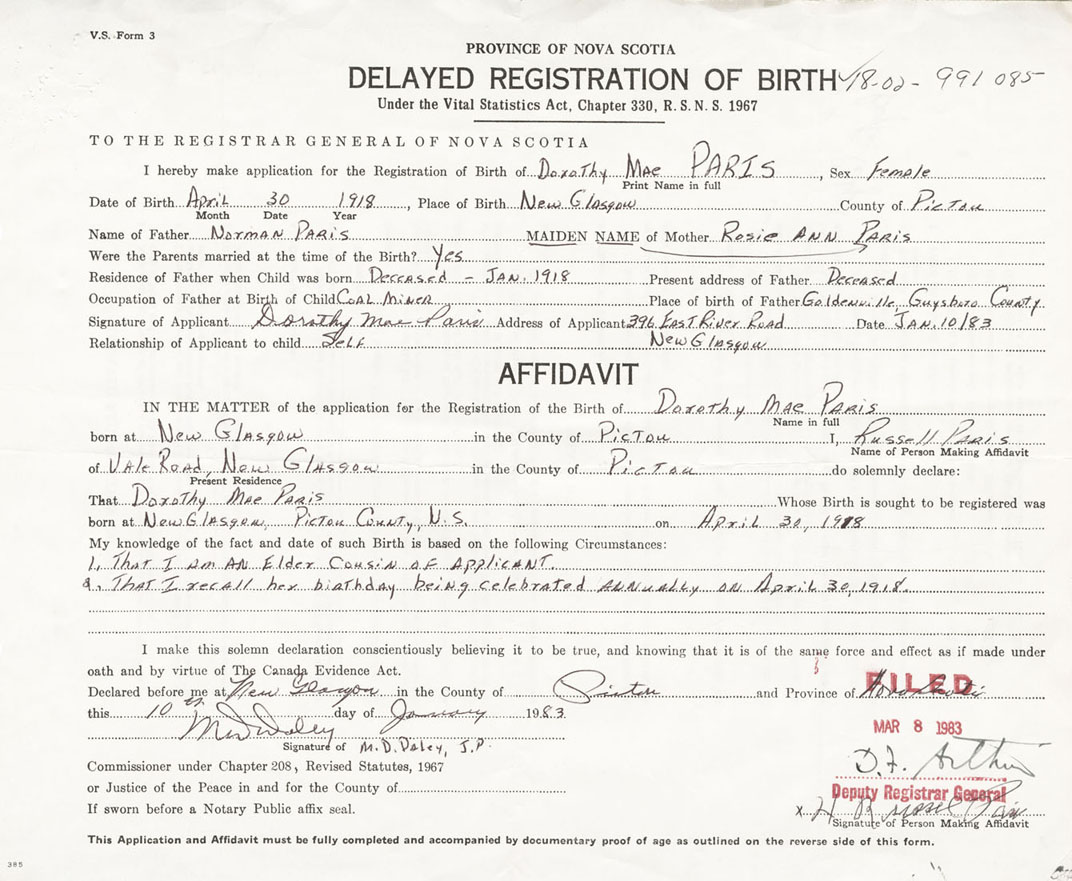 V.S. Form 3
PROVINCE OF NOVA SCOTIA
DELAYED REGISTRATION OF BIRTH 18-02- 991085
Under the Vital Statistics Act, Chapter 330, R.S.N.S. 1967
TO THE REGISTRAR GENERAL OF NOVA SCOTIA
I hereby make application for the Registration of Birth of Dorothy Mae PARIS, Sex Female
Print Name in full
Date of Birth April 30 1918, Place of Birth New Glasgow County of Pictou
Month Date Year
Name of Father Norman Paris MAIDEN NAME of Mother Rosie Ann Paris
Were the Parents married at the time of the Birth? Yes
Residence of Father when Child was born Deceased - Jan. 1918 Present address of Father Deceased
Occupation of Father at Birth of Child Coal Miner Place of birth of Father Goldenville, Guysboro County
Signature of Applicant Dorothy Mae Paris Address of Applicant 396 East River Road Date Jan. 10/83
Relationship of Applicant to child Self New Glasgow
AFFIDAVIT
IN THE MATTER of the application for the Registration of the Birth of Dorothy Mae Paris
Name in full
born at New Glasgow in the County of Pictou I, Russell Paris
Name of Person Making Affidavit
of Vale Road, New Glasgow in the County of Pictou do solemnly declare:
Present Residence
That Dorothy Mae Paris Whose Birth is sought to be registered was
born at New Glasgow, Pictou County, N.S. on April 30, 1918
My knowledge of the fact and date of such Birth is based on the following Circumstances:
1, That I am an Elder Cousin of Applicant.
2. That I recall her birthday being celebrated annually on April 30, 1918.
I make this solemn declaration conscientiously believing it to be true, and knowing that it is of the same force and effect as if made under
oath and by virtue of The Canada Evidence Act.
Declared before me at New Glasgow in the County of Pictou and Province of Nova Scotia
FILED
this 10th day of January 1983
MAR 8 1983
M D Daley
Signature of M.D. Daley, J.P.
D.F. Arthur
Commissioner under Chapter 208, Revised Statutes, 1967
Deputy Registrar General
or Justice of the Peace in and for the County of
x H Russel Paris
If sworn before a Notary Public affix seal.
Signature of Person Making Affidavit
This Application and Affidavit must be fully completed and accompanied by documentary proof of age as outlined on the reverse side of this form.
385